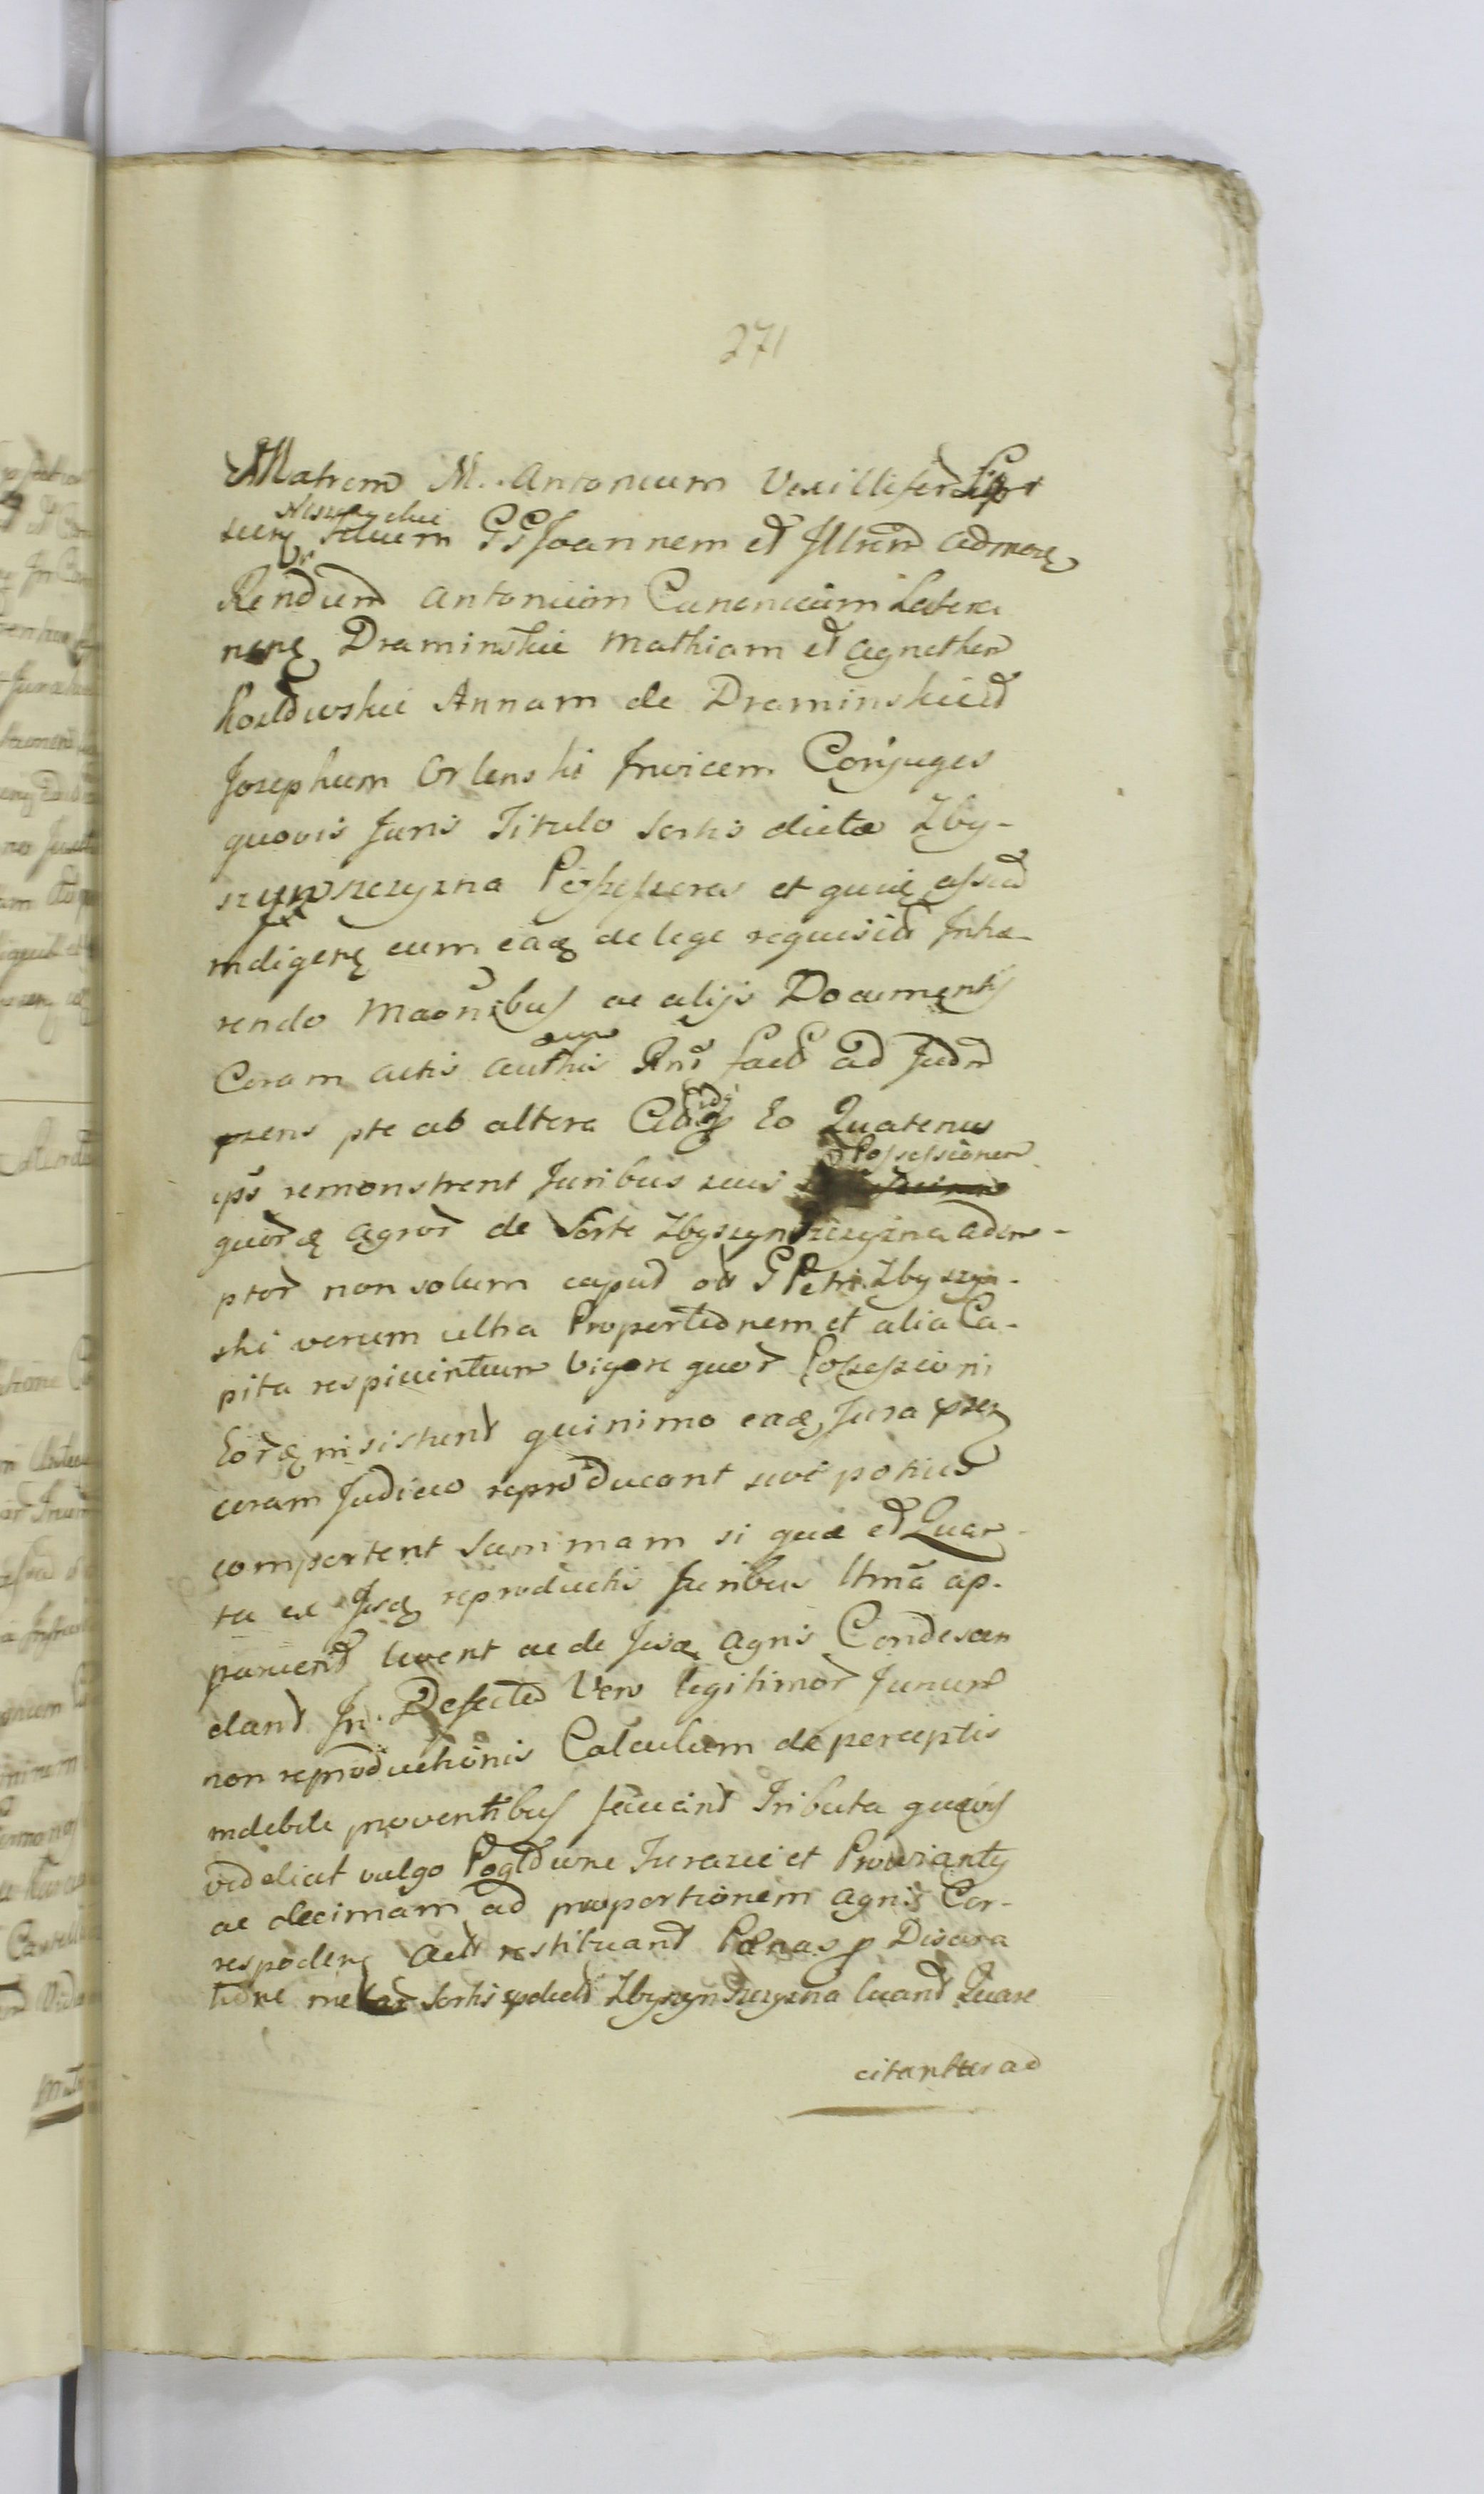 271
Matrem M. Antonium Vexilliferū
suēn Filium GG Joannem et Illrem Admoq
Rendum Antonium Canonicum Latera
nenq Draminskie Mathiam et Agnethen
Josephum Orlenski Invicem Conjuges
quovis Juris Titulo Sortis dictæ Zby-
szynszczyzna Possessores et quiq assid
indigenq cum eaq de lege requisit Inhæ-
rendo Maōnibus ac alijs Documentis
Coram actis authis fact ad Judm
prens pte ab altera Eo Quatenus
Possessionem
ipsi remonstrent Juribus suis
quorq agror de Sorte Zbyszynszczyzna adem-
ptor non solum caput olī G Petri Zbyszyn-
ski verum ultra Proportionem et alia Ca-
pita respicientium vigore quor Possessioni
Eorq insistunt quinimo eaq Jura prez
coram Judicio reproducant sive potius
comportent Summam si quæ et Quan-
ta ex Jisq reproductis Juribus ltmā ap-
paruerit levent ac de Jisq Agris Condescen
dant In Defectu Vero legitimor Jurium
non reproductionis Calculum de perceptis
indebite proventibus faciant Tributa quævis
videlicet vulgo Pogłowne Kurazei et Prowianty
ac decimam ad proportionem agris Cor-
respōdenq Acti restituant Pœnas p Disara
tione metar Sortis Zbyszynszczyzna luant Quare
citantur ad